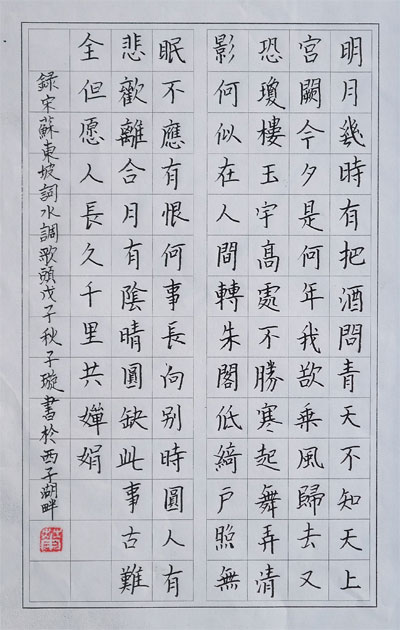 明月幾時有把酒問青天不知天上
宮闕今夕是何年我欲乘風歸去又
恐瓊樓玉宇髙處不勝寒起舞弄清
影何似在人間轉朱閣低綺戶照無
眠不應有恨何事長向别時圓人有
悲歡離合月有陰晴圓缺此事古難
全但愿人長久千里共嬋娟
錄宋蘇東坡詞水調歌頭戊子秋子璇書於西子湖畔